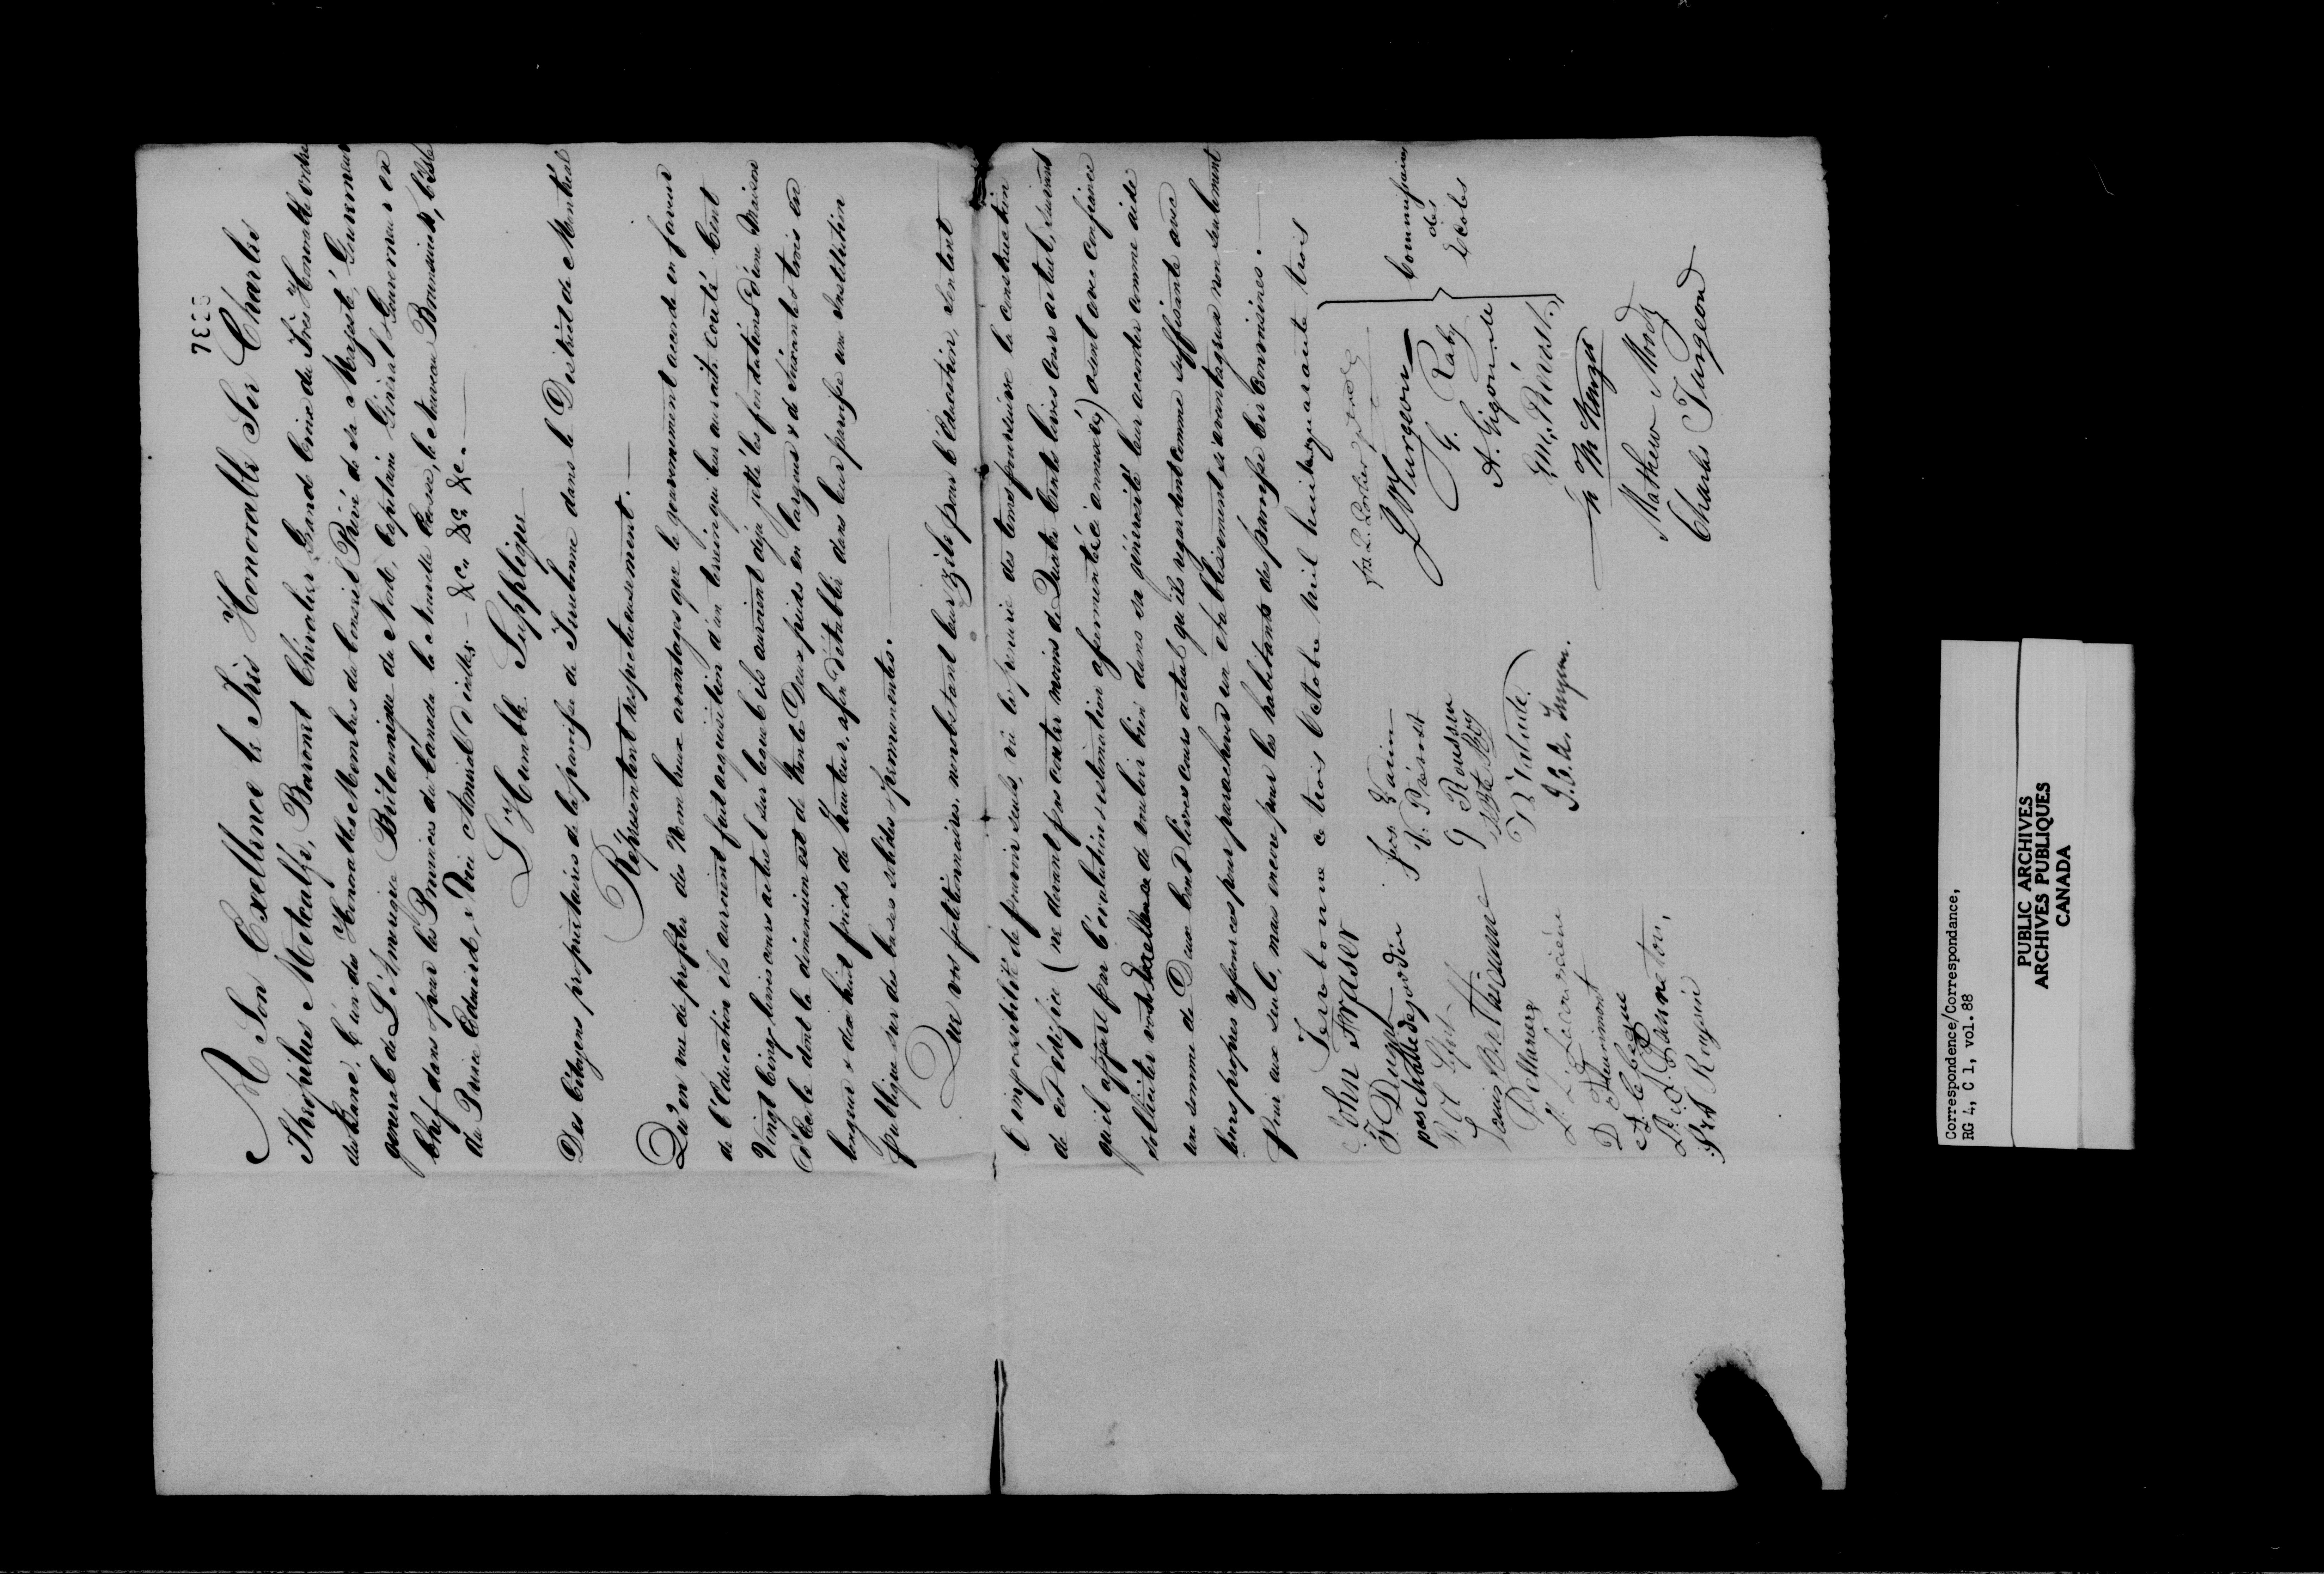 7838
A Son Exellence le Très Honorable Sir Charles
Théophilus Metcalfe, Baronet Chevalier Grande Croix du Très Honorable Ordre
du Bane, L'un des Honorables Membres du Conseil Privé de sa Majesté, Gouverneur
général de L'Amérique Britannique du Nord, Capitaine Général & Gouverneur en
Chef dans & pour les Provinces du Canada la Nouvelle Ecosse, le Nouveau Brunswick, & L'isle
du Prince Edouard, & Vice Amiral d'icelles. — &ca &ca &c.
L'Humble Supplique
Des Citoyens propriétaires de la paroisse de Terrebonne dans le District de Montréal
Réprésentent respectueusement. —
Qu'en vue de profiter des Nombreux avantages que le gouvernement accorde en faveur
de l'Education ils auroient fait acquisition d'un terrein qui leur auroit couté Cent
Vingt Cinq livres cours actuel sur lequel ils auroient déja jetté les fondations d'une Maison
d'Ecole dont la dimension est de trente Deux pieds en largeur & de soixante & trois en
longueur & dix huit pieds de hauteur, afin d'établir dans leur paroisse une Institution
publique sur des bases solides & permanentes. —
Que vos pétitionnaires, nonobstant leur zèle pour l'éducation, sentent
l'impossibilité de pouvoir seuls, vû la penurie des tems poursuivre la construction
de cet édifice (ne devant pas couter moins de Quatre Cents livres cours actuel, suivant
qu'il appert par l'évaluation & estimation assermentée ci annexée) osent avec confiance
solliciter votre Excellence de vouloir bien dans sa générosité leur accorder comme aide
une somme de Deux Cent livres cours actuel qu'ils regardent comme suffisante avec
leurs propres ressources pour parachever un établissement si avantageux non seulement
pour eux seuls, mais encore pour les habitants des paroisses circonvoisines. —
Terrebonne ce trois Octobre mil huit quarante trois
John Fraser
F Dugal
pascchalledejordin
Louis
Dellarerez
D Fleurimont
A. Lebegue
Frs Vain
V. Prévost
G Rousseau
J Bte Roy
Frs. L. Portier
J Turgeon
G. Raby
A. Gigoni
Em. Prévost.
Mathew Moody
Charles Turgeon
Commissaires
des
Ecoles
Correspondence/Correspondance,
RG 4, C 1, vol. 88
PUBLIC ARCHIVES
ARCHIVES PUBLIQUES
CANADA